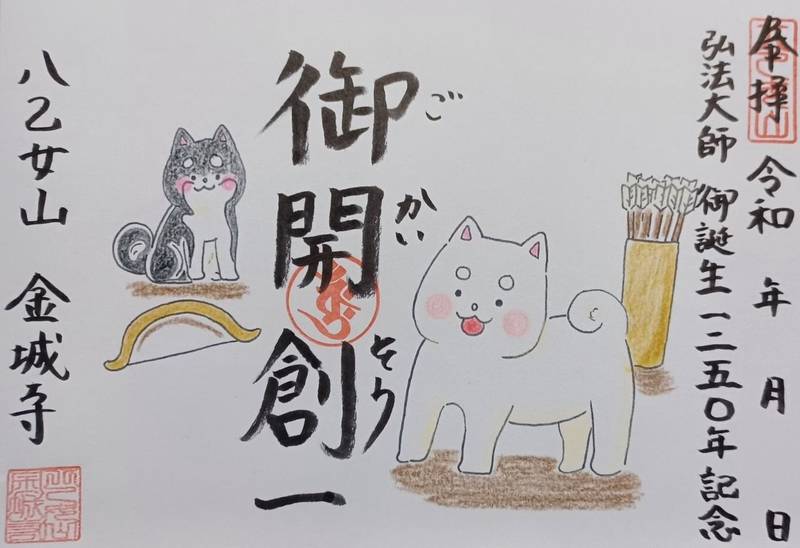 奉拝 令和 年 月 日
弘法大師 御誕生一二五〇年記念
ご かい そう
御開創一
八乙女山 金城寺